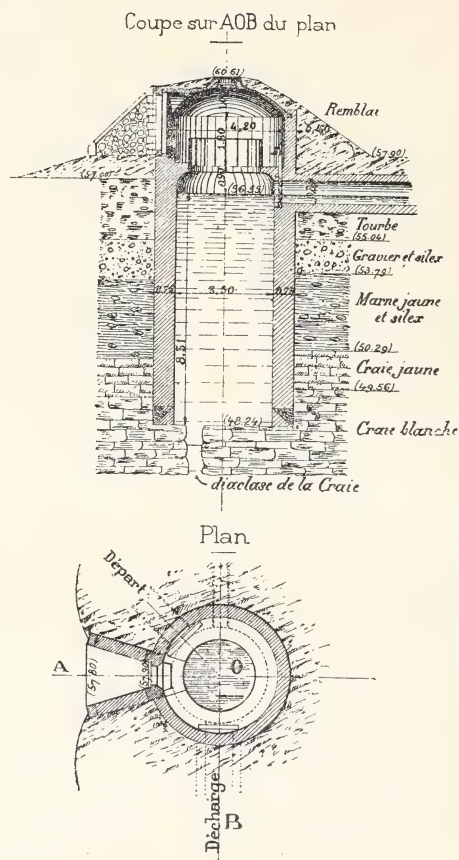 Coupe sur AOB du plan
(60.61)
Remblai
4,20
1.80
(57.90)
(57.00)
0.97
(56.55)
Tourbe
(55.04)
Gravier et silex
(53.79)
0.75
3.50
0.75
Marne jaune
et silex
8.31
(50.29)
Craie jaune
(49.56)
(48.24)
Craie blanche
diaclase de la Craie
Plan
Départ
A
(57.80)
O
Décharge
B